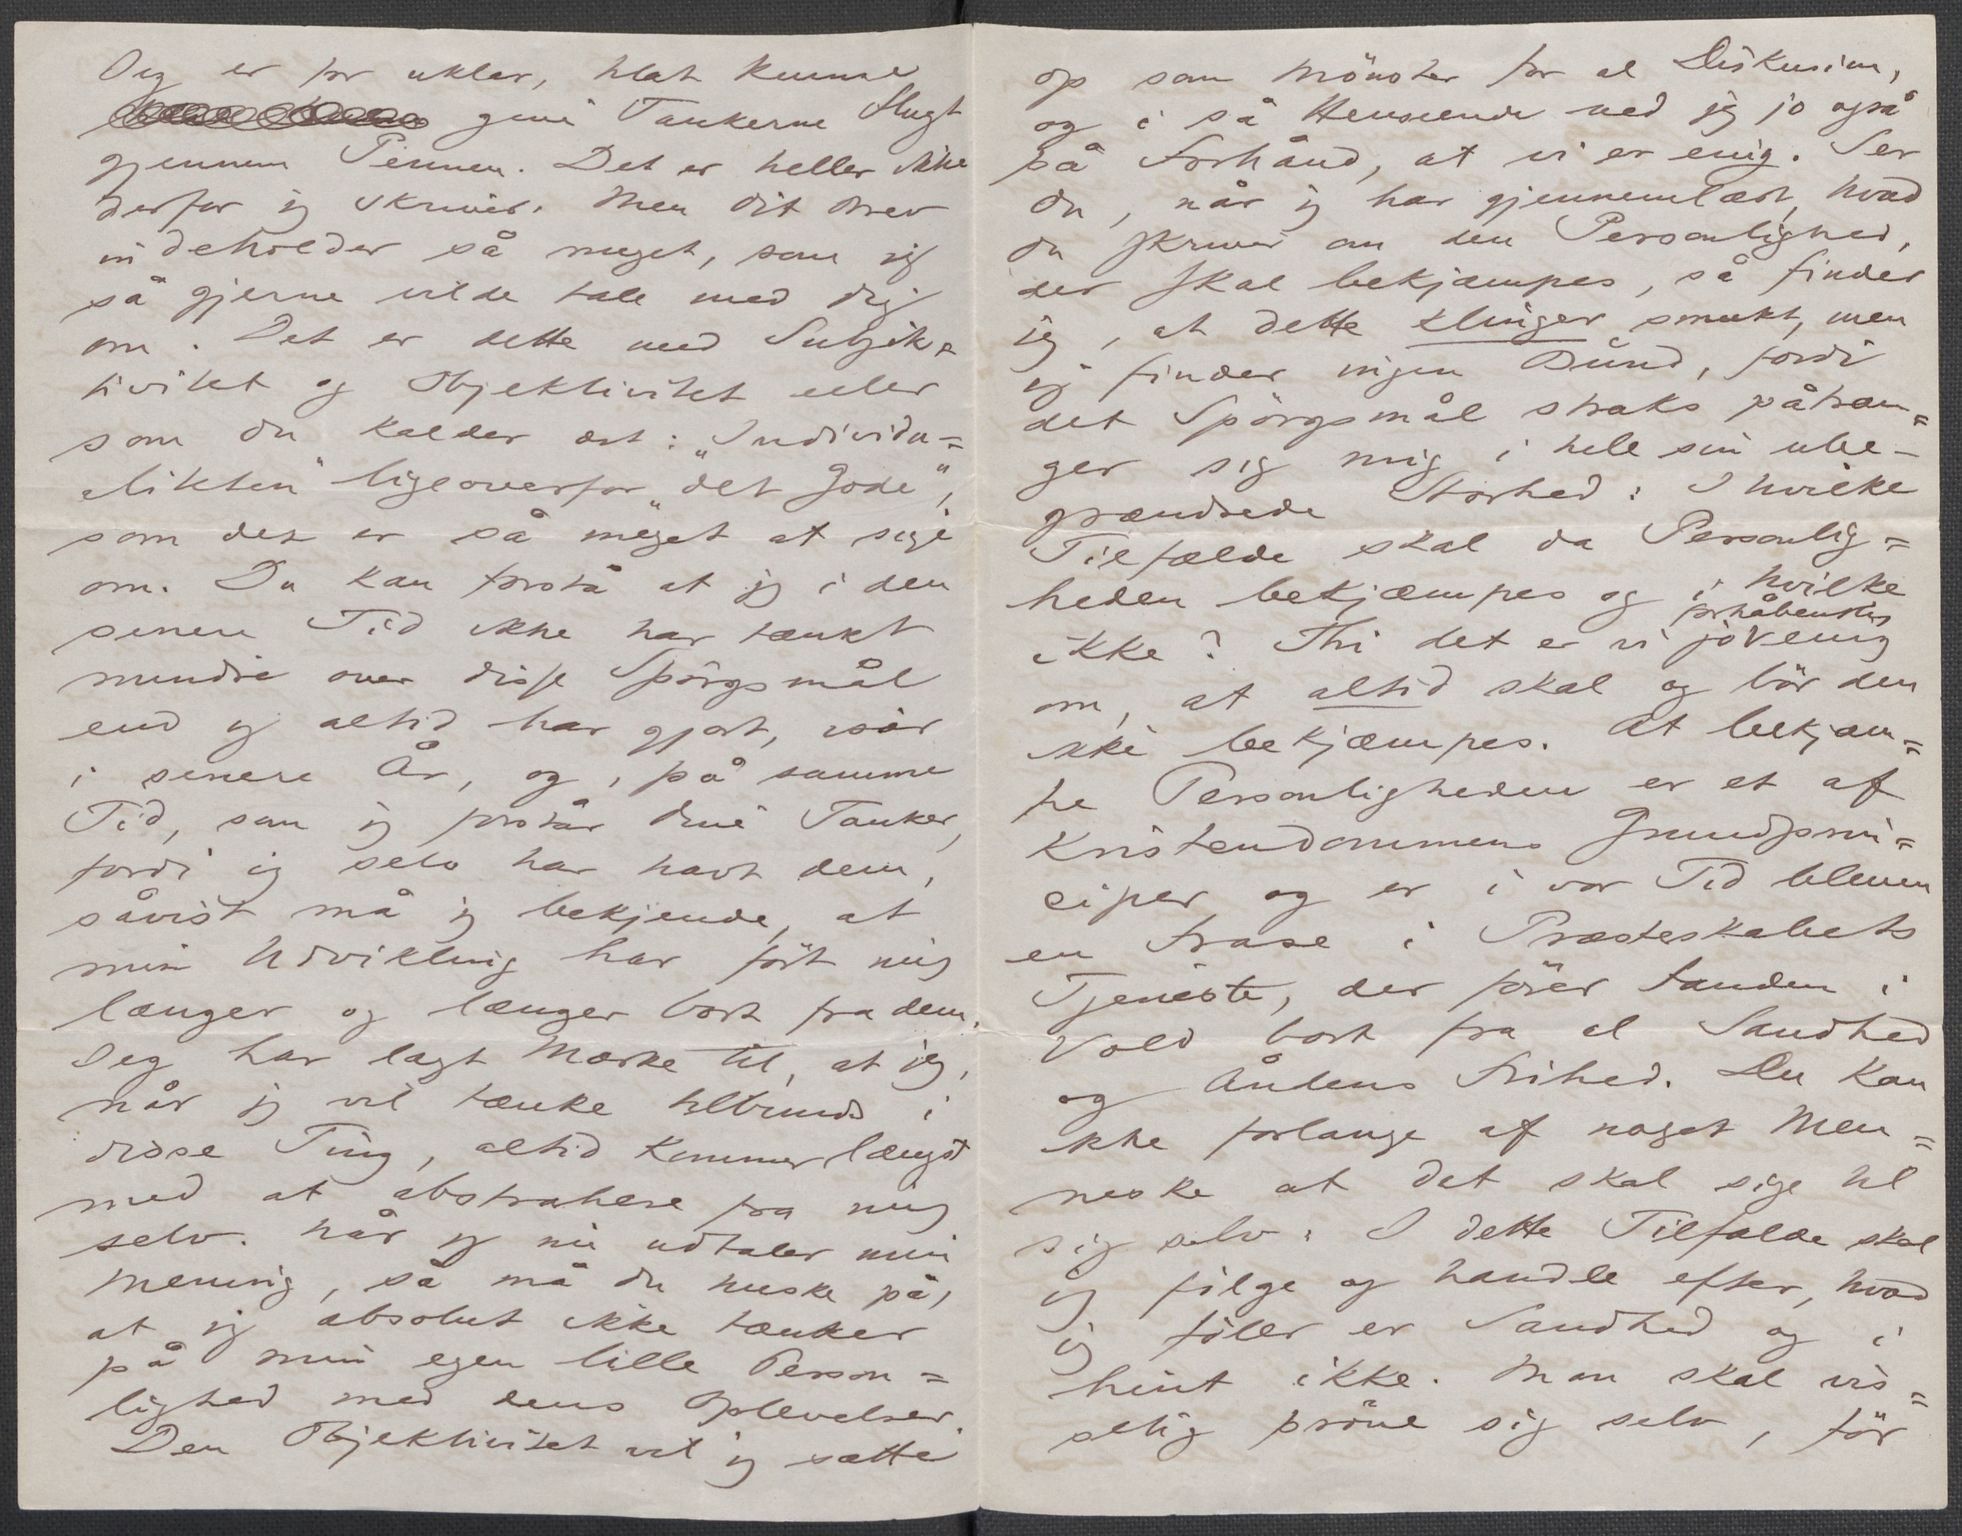 Og er for uklar, til at kunne
give Tankerne Flugt
gjennem Pennen. Det er heller ikke
derfor jeg skriver. Men dit Brev
indeholder så meget, som jeg
så gjerne vilde tale med dig
om. Det er dette med Subjek=
tivitet og Objektivitet eller
som du kalder det: „Individu=
aliteten" ligeoverfor „det Gode",
som der er så meget at sige
om. Du kan forstå at jeg i den
senere Tid ikke har tænkt
mindre over disse Spörgsmål
end jeg altid har gjort, især
i senere År, og, på samme
Tid, som jeg forstår dine Tanker,
fordi jeg selv har havt dem,
såvist må jeg bekjende, at
min Udvikling har fört mig
længer og længer bort fra dem.
Jeg har lagt Mærke til, at jeg,
når jeg vil tænke tilbunds i
disse Ting, altid kommer længst
med at abstrahere fra mig
selv. Når jeg nu udtaler min
Mening, så må du huske på,
at jeg absolut ikke tænker
på min egen lille Person=
lighed med dens Oplevelser.
Den Objektivitet vil jeg sætte
op som Mönster for al Diskusion,
og i så Henseende ved jeg jo også
på Forhånd, at vi er enig. Ser
du, når jeg har gjennemlæst, hvad
du skriver om den Personlighed,
der skal bekjæmpes, så finder
jeg, at dette klinger smukt, men
jeg finder ingen Bund, fordi
det Spörgsmål straks påtræn=
ger sig mig i hele sin ube-
grændsede Storhed: I hvilke
Tilfælde skal da Personlig=
heden bekjæmpes og i hvilke
ikke? Thi det er vi jo forhåbentlig enig
om, at altid skal og bör den
ikke bekjæmpes. At bekjæm=
pe Personligheden er et af
Kristendommens Grundprin=
ciper og er i vor Tid bleven
en Frase i Præsteskabets
Tjeneste, der förer Landen i
Vold bort fra al Sandhed
og Åndens Frihed. Du kan
ikke forlange af noget Men=
neske at det skal sige til
sig selv: I dette Tilfælde skal
jeg fölge og handle efter, hvad
jeg föler er Sandhed og i
hint ikke. Man skal vis=
selig pröve sig selv, för